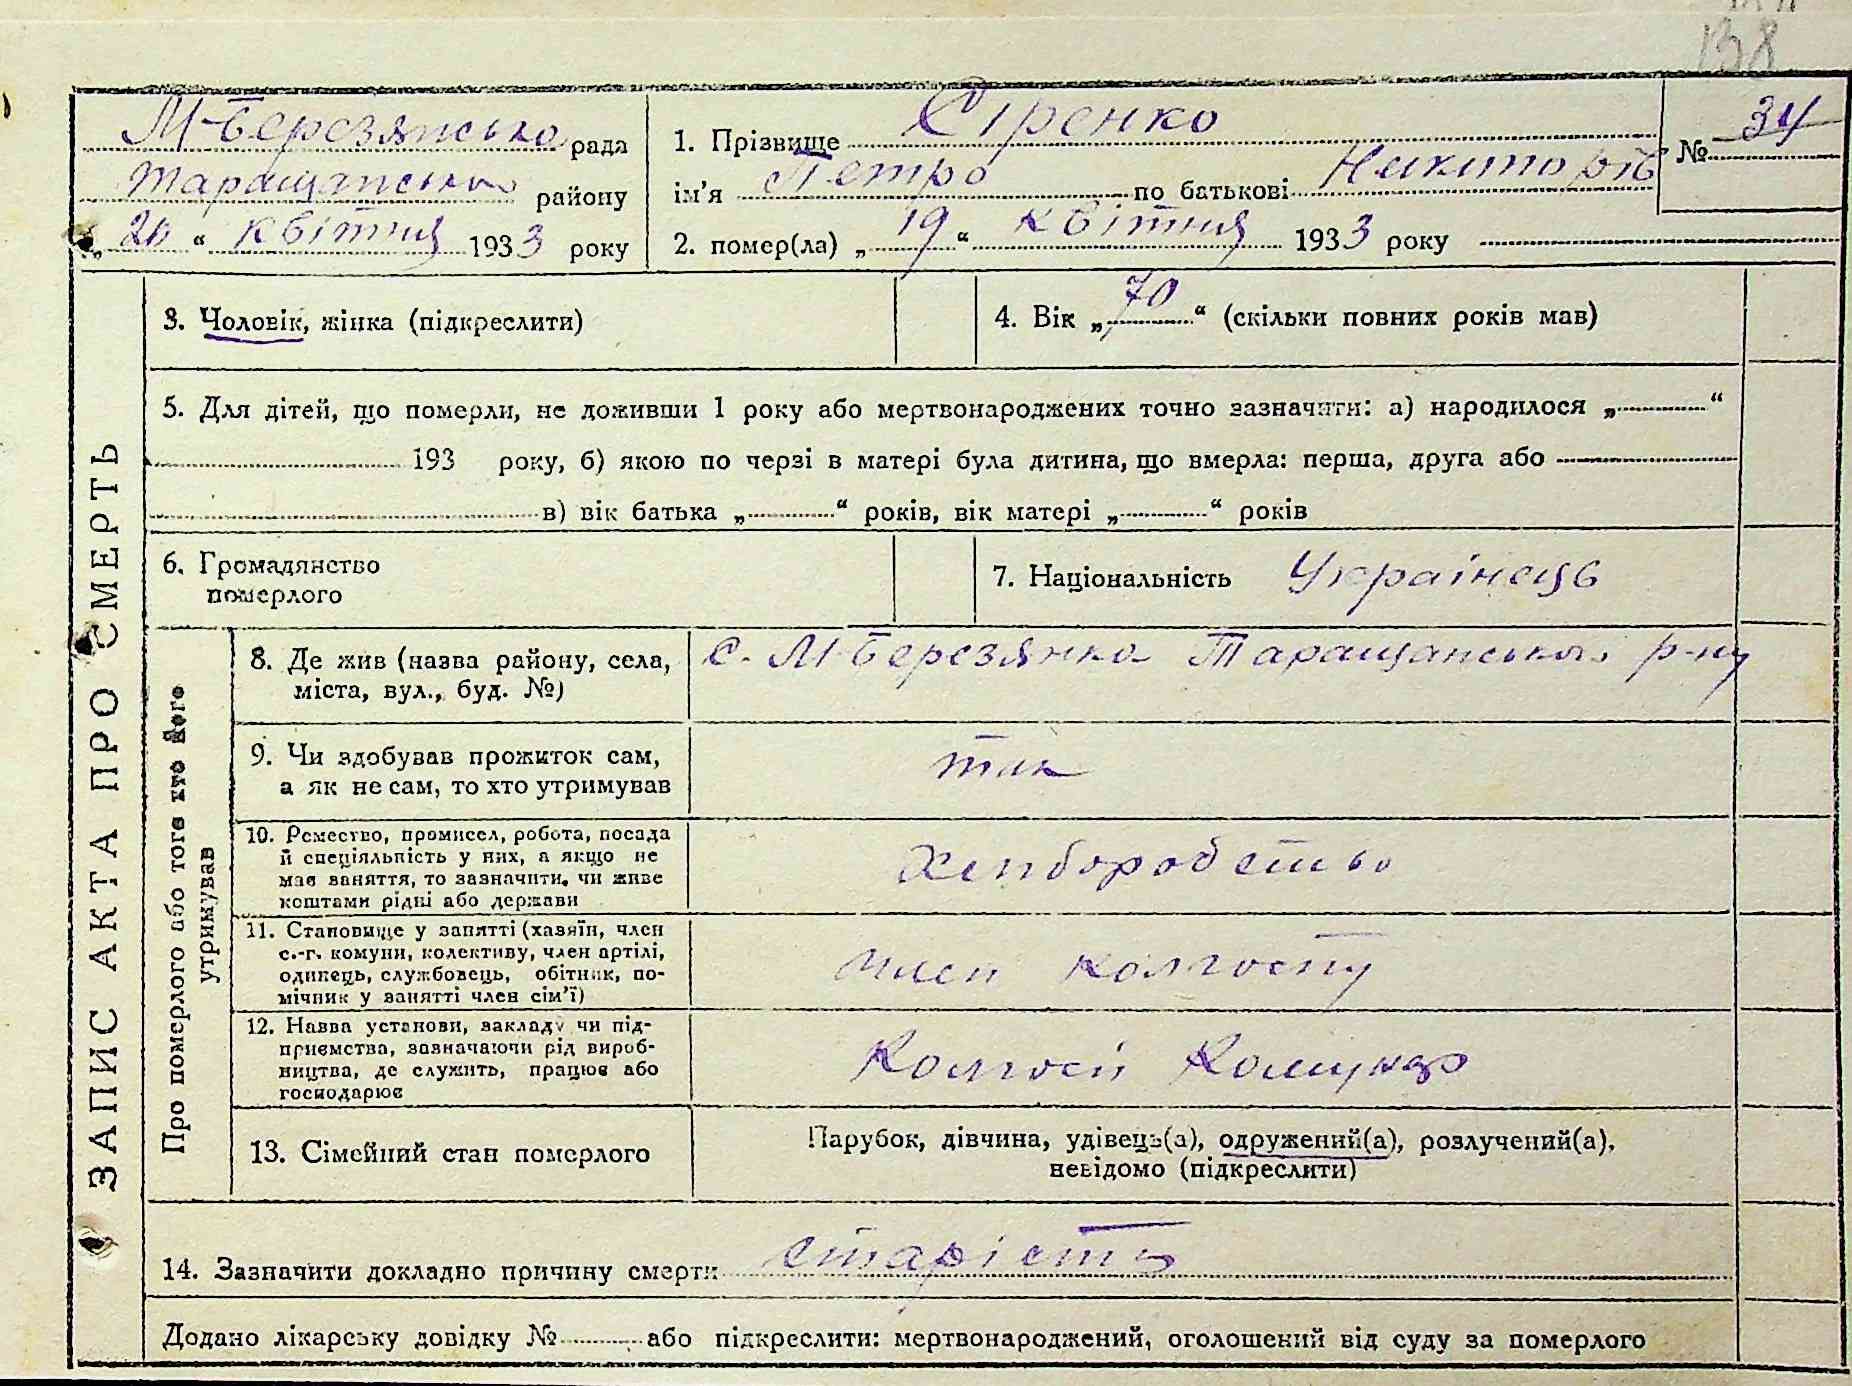 138
М-Березянсько рада
Таращанського району
„20“ квітня 1933 року
1. Прізвище Сіренко
ім'я Петро по батькові Никипорів
2. помер(ла) „19“ квітня 1933 року
№ 34
ЗАПИС АКТА ПРО СМЕРТЬ
3. Чоловік, жінка (підкреслити)
4. Вік „70“ (скільки повних років мав)
5. Для дітей, що померли, не доживши 1 року або мертвонароджених точно зазначити: а) народилося „ “
193 року, б) якою по черзі в матері була дитина, що вмерла: перша, друга або
в) вік батька „ “ років, вік матері „ “ років
6. Громадянство
померлого
7. Національність Українець
Про померлого або того хто його
утримував
8. Де жив (назва району, села,
міста, вул., буд. №)
с. М-Березянка Таращанського р-ну
9. Чи здобував прожиток сам,
а як не сам, то хто утримував
так
10. Ремество, промисел, робота, посада
й спеціяльність у них, а якщо не
має заняття, то зазначити, чи живе
коштами рідні або держави
Хлпборобство
11. Становище у занятті (хазяїн, член
с.-г. комуни, колективу, член артілі,
одинець, службовець, обітник, по-
мічник у занятті член сім'ї)
член колгоспу
12. Назва установи, закладу чи під-
приємства, зазначаючи рід вироб-
ництва, де служить, працює або
господарює
Колгосп Комунар
13. Сімейний стан померлого
Парубок, дівчина, удівець(а), одружений(а), розлучений(а),
невідомо (підкреслити)
14. Зазначити докладно причину смерти старість
Додано лікарську довідку № або підкреслити: мертвонароджений, оголошений від суду за померлого